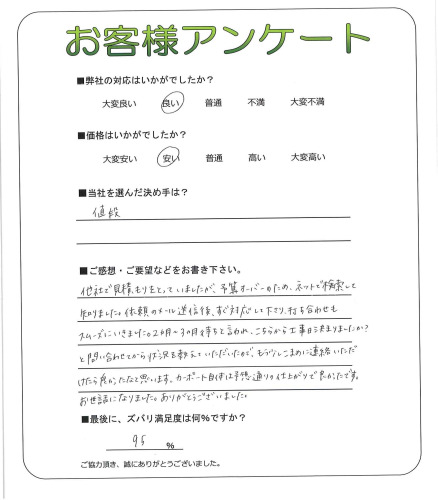 お客様アンケート
■弊社の対応はいかがでしたか？
大変良い 良い 普通 不満 大変不満
■価格はいかがでしたか？
大変安い 安い 普通 高い 大変高い
■当社を選んだ決め手は？
値段
■ご感想・ご要望などをお書き下さい。
他社で見積もりをとっていましたが、予算オーバーのため、ネットで検索して
知りました。依頼のメール送信後、すぐ対応して下さり、打ち合わせも
スムーズにいきました。2ヶ月〜3ヶ月待ちと言われ、こちらから工事日決まりましたか？
と問い合わせてから状況を教えていただいたので、もう少しこまめに連絡いただ
けたら良かったなと思います。カーポート自体は予想通りの仕上がりで良かったです。
お世話になりました。ありがとうございました。
■最後に、ズバリ満足度は何％ですか？
95 ％
ご協力頂き、誠にありがとうございました。